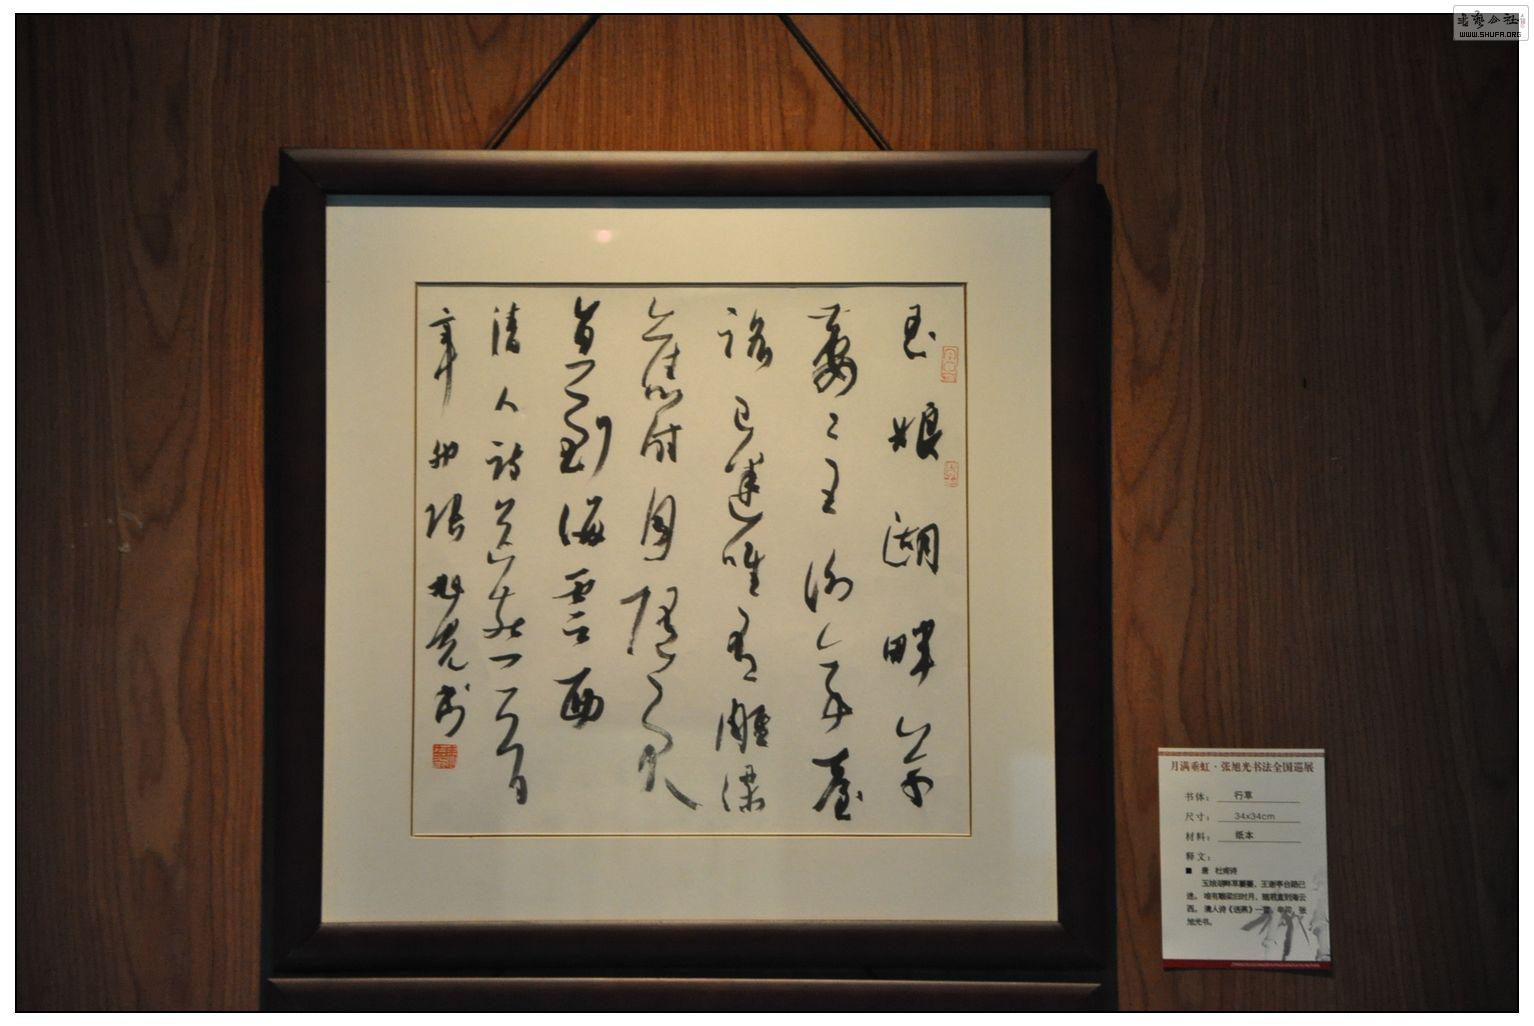 玉娘湖畔草
萋萋王谢亭臺
路已迷唯有雕梁
舊时月随君
直到海雲西
清人诗送燕一首
辛卯张旭光书
月满乘虹·张旭光书法全国巡展
书体：行草
尺寸：34x34cm
材料：纸本
释文：
■ 唐 杜甫诗
玉娘湖畔草萋萋，王谢亭台路已
迷。唯有雕梁旧时月，随君直到海云
西。清人诗《送燕》一首，辛卯，张
旭光书。
WWW.SHUFA.ORG